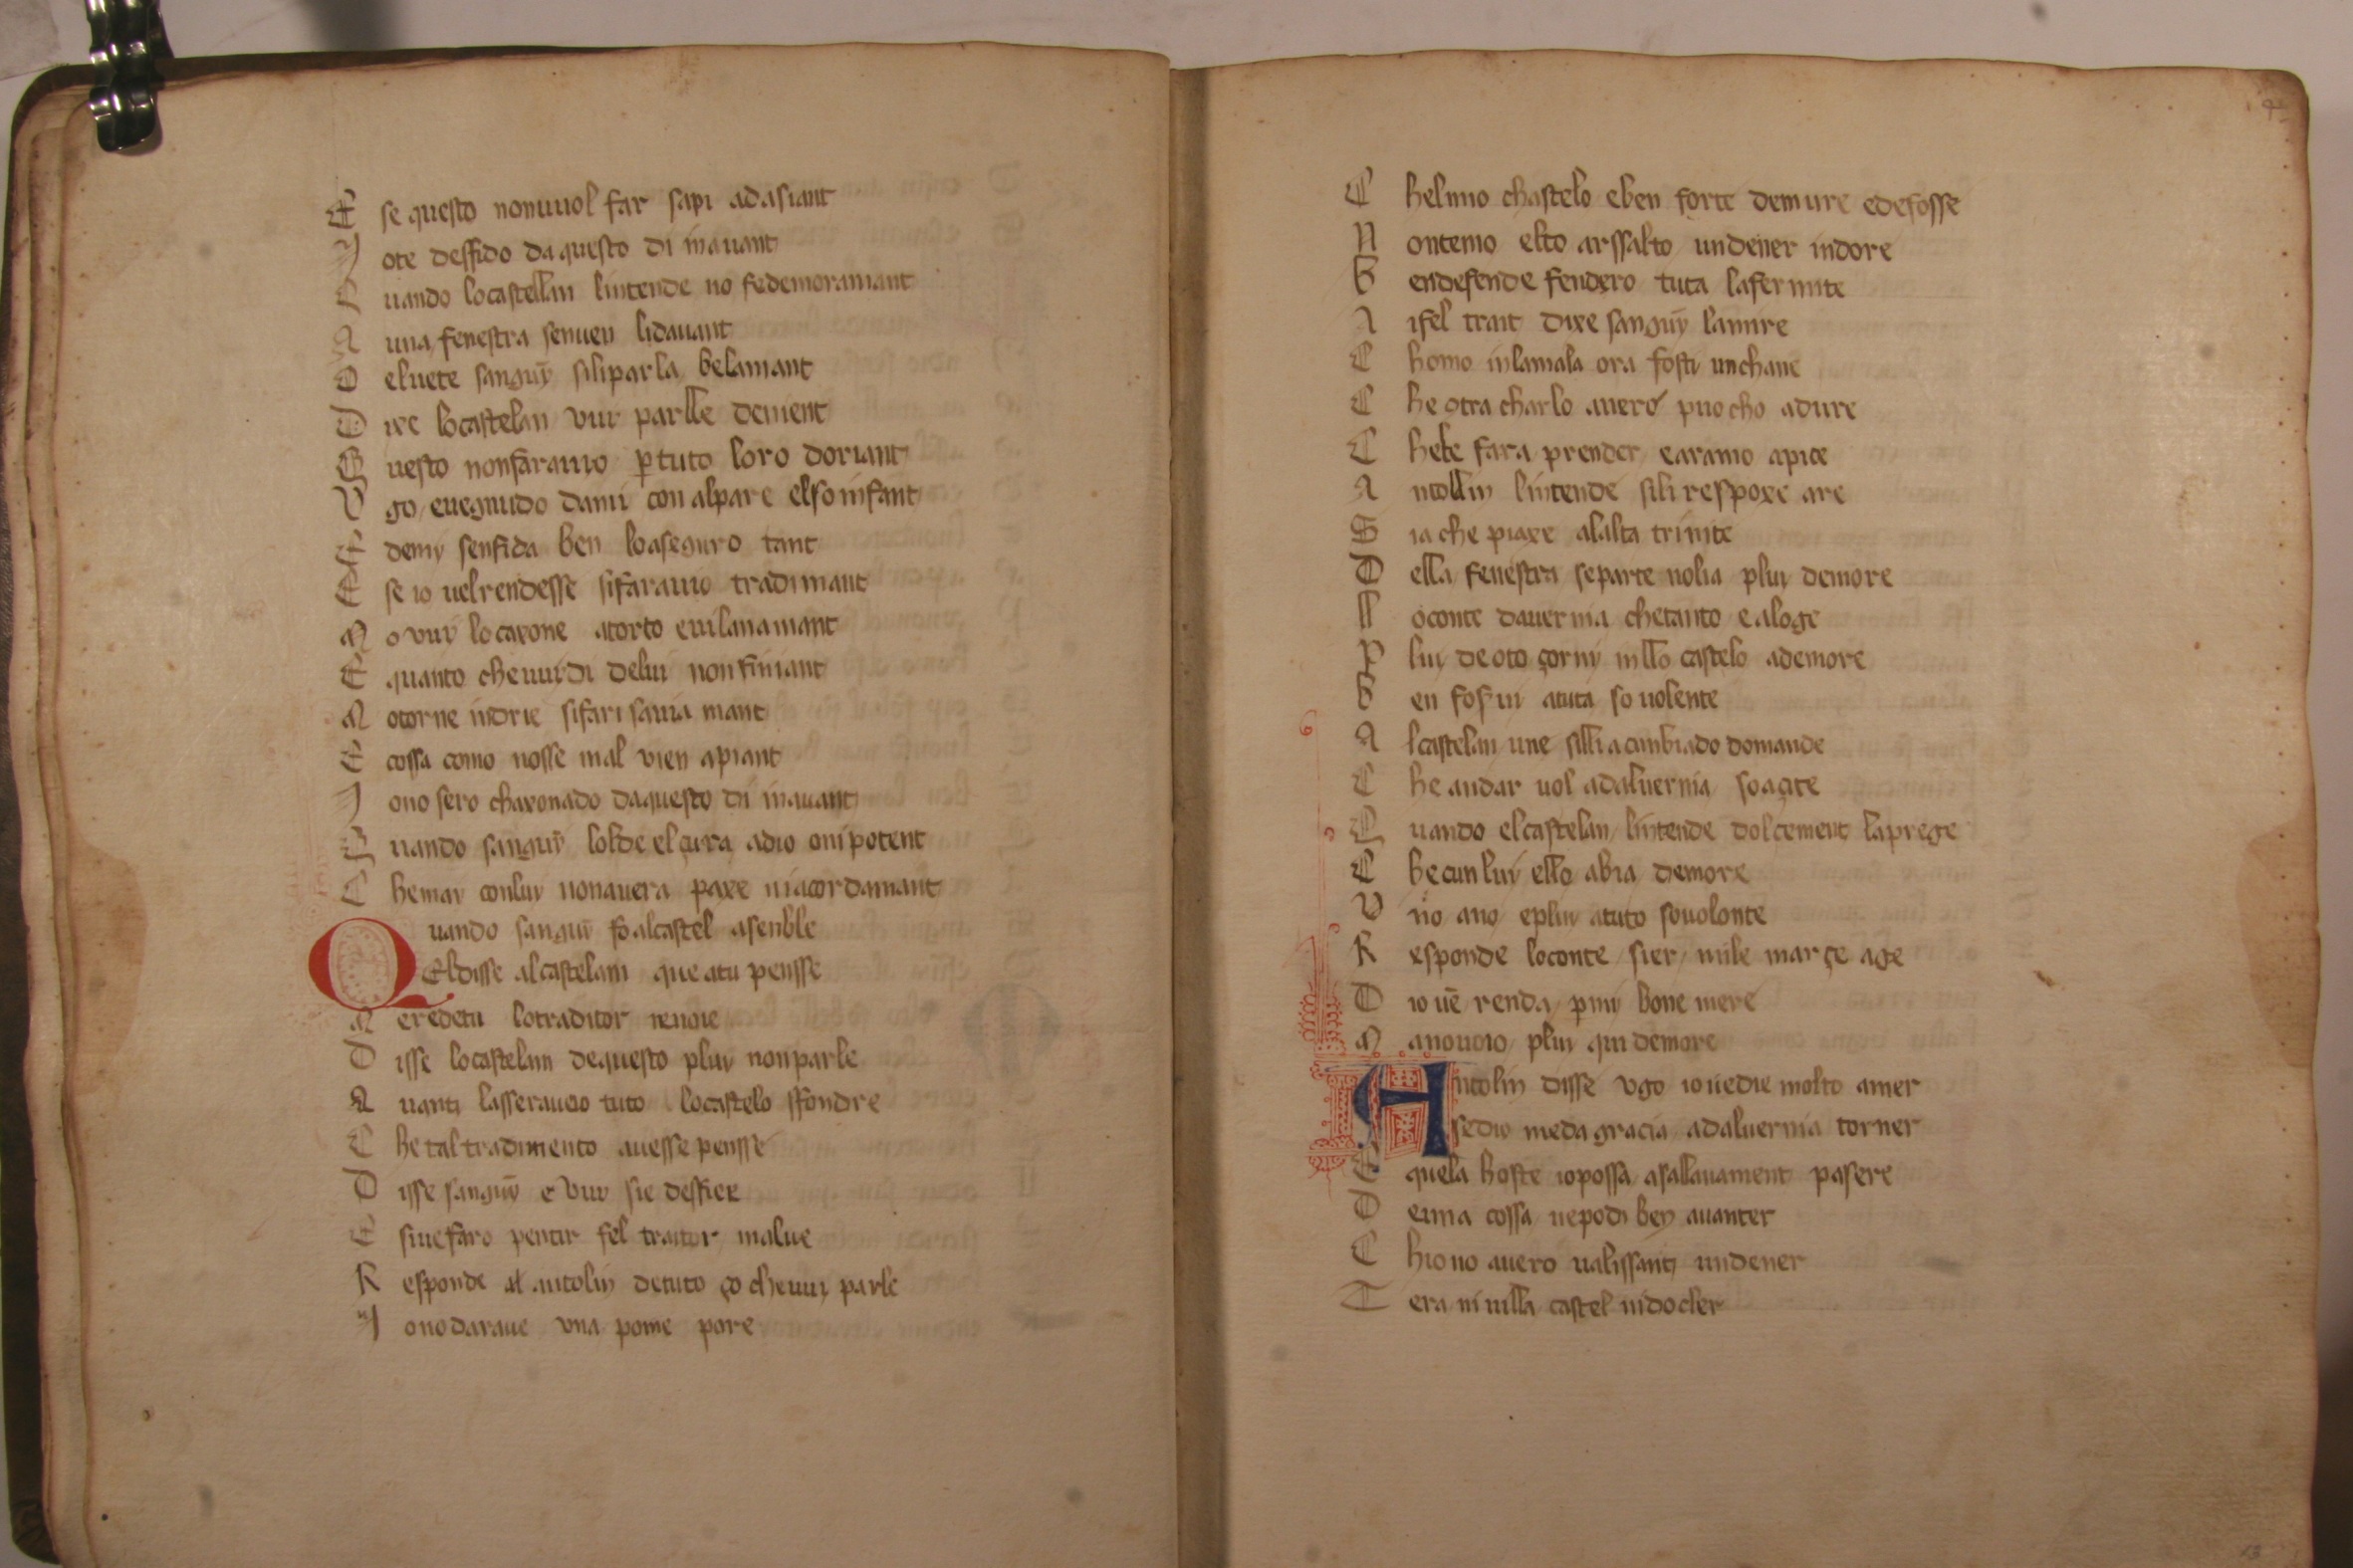 E se questo nonuuol far sapi adasiant
I ote desfido da questo di inauant
Q uando locastellan lintende no fedemoramant
A una fenestra senuen lidauant
O eluete sanguỹ siliparla belamant
D ixe locastelan vuy parlle denient
Q uesto nonfarauio ꝑtuto loro doriant
V go euegnudo dami con alpare elso infant
E demy senfida ben loaseguro tant
E se io uelrendesse sifarauio tradimant
M o vuy locaxone atorto euilanamant
E quanto cheuuydi deluy nonfiniant
M otorne indrie sifari sauia mant
E cossa como nosse mal vien apiant
I ono sero chaxonado daquesto di inauant
Q uando sanguỹ lolde elçura adio onipotent
C hemay conluy nonauera paxe niacordamant
Quando sanguỹ fo alcastel asenble
Eldisse alcastelam que atu pensse
M eredetu lotraditor renoie
D isse locastelan dequesto pluy nonparle
A uanti lasserauoio tuto locastelo sfondre
C he tal tradimento auesse pensse
D isse sanguỹ e vuy sie desfiee
E siuefaro pentir fel traitor malue
R esponde al antolin detuto ço cheuuy parle
I onodaraue vna pome pore
C helmio chastelo eben forte demure edefosse
N ontemo elto arssalto undener indore
B endefende fendero tuta lafermite
A ifel trait dixe sanguỹ lanire
C homo inlamala ora fosti unchane
C he otra charlo auero puocho adure
C hete fara prender earamo apice
A ntollin lintende sili respoxe are
S ia che piaxe alalta trinite
D ella fenestra separte nolia pluy demore
L oconte dauernia chetanto ealoge
P luy deoto çorny inllo castelo ademore
B en fosuy atuta so uolente
A lcastelan une silli a cunbiado domande
C he andar uol adaluernia soacite
Q uando elcastelan lintende dolçement laprege
C hecunluy ello abia demore
V no ano epluy atuto souolonte
R esponde loconte sier mile marçe age
D io uē renda ꝑmy bone mere
M anouoio pluy qui demore
Antolin disse vgo iouedie molto amer
sedio meda gracia adaluernia torner
E quela hoste iopossa asallauament pasere
D euna cossa uepodi ben auanter
C hiono auero ualissant undener
T era ni uilla castel nidocler